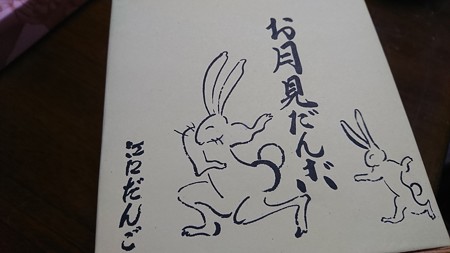 お月見だんご
江口だんご